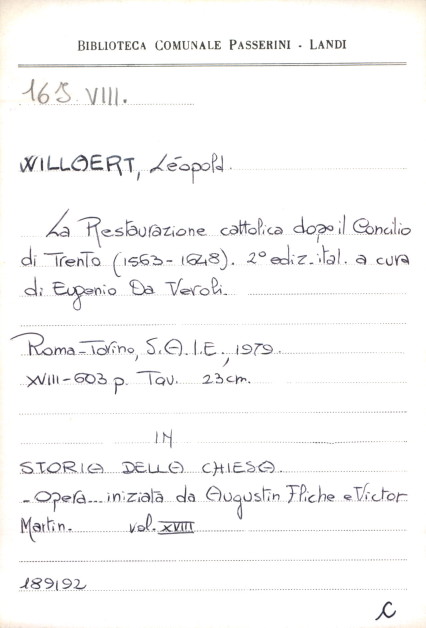 BIBLIOTECA COMUNALE PASSERINI - LANDI
16S VIII.
WILLAERT, Léopold.
La Restaurazione cattolica dopo il Concilio
di Trento (1563-1648). 2° ediz. ital. a cura
di Eugenio Da Veroli.
Roma-Torino, S.A.I.E., 1979.
XVIII-603 p. Tav. 23 cm.
IN
STORIA DELLA CHIESA.
- Opera... iniziata da Augustin Fliche e Victor
Martin. vol. XVIII
189192
C